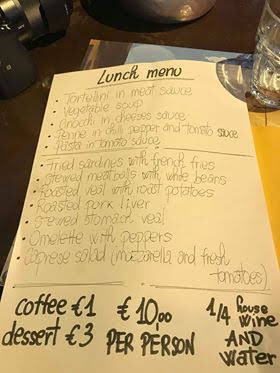 Lunch menu
• Tortellini in meat sauce
• Vegetable soup
• Gnocchi in cheeses sauce
• Penne in chilli pepper and tomato sauce
• Pasta in tomato sauce
• Fried sardines with french fries
• Stewed meatballs with white beans
• Roasted veal with roast potatoes
• Roasted pork liver
• Stewed stomach veal
• Omelette with peppers
• Caprese salad (mozzarella and fresh
tomatoes)
coffee €1
dessert €3
€ 10,00
PER PERSON
1/4 house
wine
AND
water